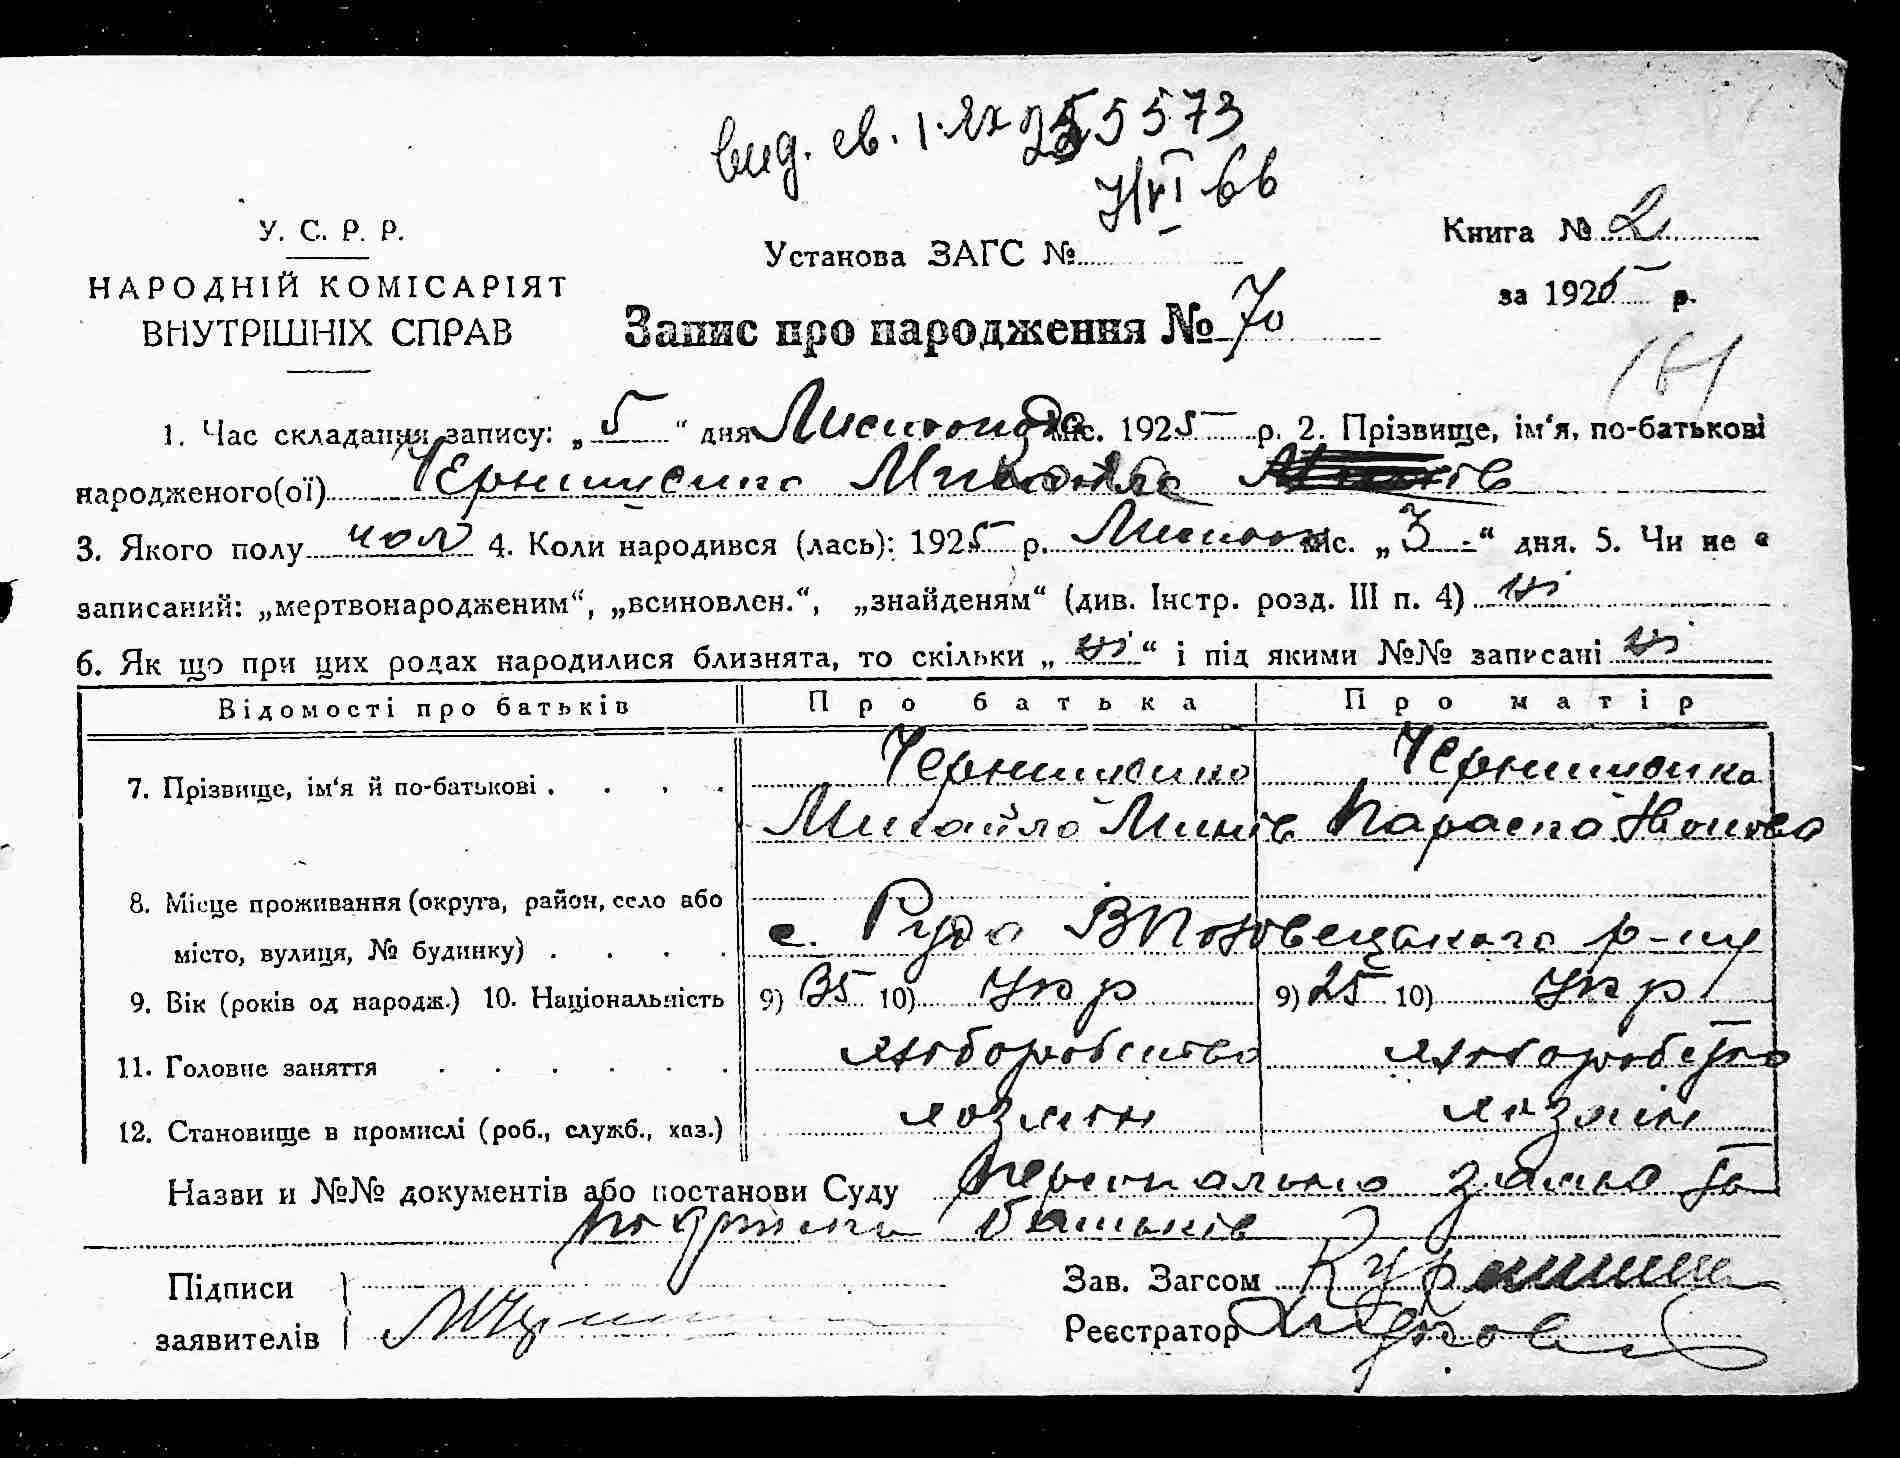 вид. св. 1. ЯХ 255573
7/VI 66
У. С. Р. Р.
НАРОДНІЙ КОМІСАРІЯТ
ВНУТРІШНІХ СПРАВ
Установа ЗАГС №
Книга № 2
за 1925 р.
Запис про народження № 70
1. Час складання запису: „ 5 “ дня Листопада міс. 1925 р. 2. Прізвище, ім‘я, по-батькові
народженого(ої) Микола
3. Якого полу чол 4. Коли народився (лась): 1925 р. Листопа міс. „ 3 “ дня. 5. Чи не є
записаний: „мертвонародженим“, „всиновлен.“, „знайденям“ (див. Інстр. розд. III п. 4) ні
6. Як що при цих родах народилися близнята, то скільки „ ні “ і під якими №№ записані ні
Відомості про батьків Про батька Про матір
7. Прізвище, ім‘я й по-батькові . . . .
Михайло Минів Параска
8. Місце проживання (округа, район, село або
місто, вулиця, № будинку) . . . . с. Руда р-ну
9. Вік (років од народж.) 10. Національність 9) 35 10) Укр 9) 25 10) Укр
11. Головне заняття . . . . . . хліборобство хлібороб
12. Становище в промислі (роб., служб., хаз.) хозяін хозяін
Назви и №№ документів або постанови Суду персонально заява
батьків
Підписи
заявителів
Зав. Загсом
Реєстратор